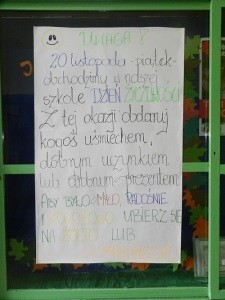 UWAGA !
20 listopada - piątek -
obchodzimy w naszej
szkole DZIEŃ ŻYCZLIWOŚCI
Z tej okazji obdaruj
kogoś uśmiechem,
dobrym uczynkiem
lub drobnym prezentem
ABY BYŁO MIŁO, RADOŚNIE
I UBIERZ SIĘ
NA LUB